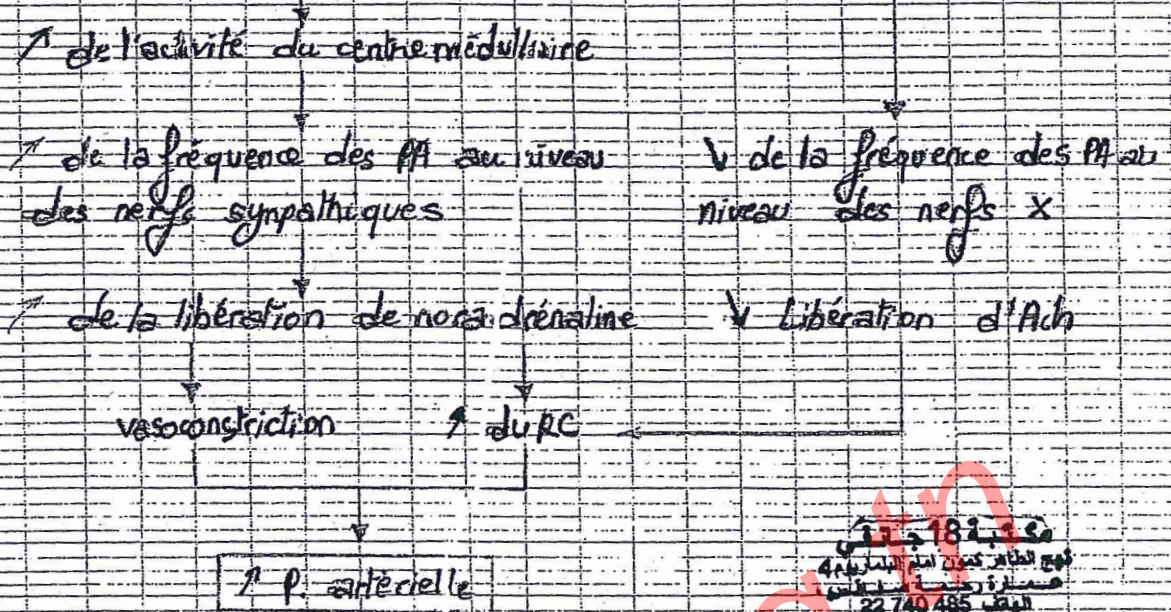 ↗ de l'activité du centre médullaire
↗ de la fréquence des PA au niveau
des nerfs sympathiques
↘ de la fréquence des PA au
niveau des nerfs X
↗ de la libération de noradrénaline
↘ Libération d'Ach
vasoconstriction
↗ du RC
↗ P. artérielle
tn
مكتبة 18 جانفي
نهج الطاهر كمون امام
عمارة
22 740 485